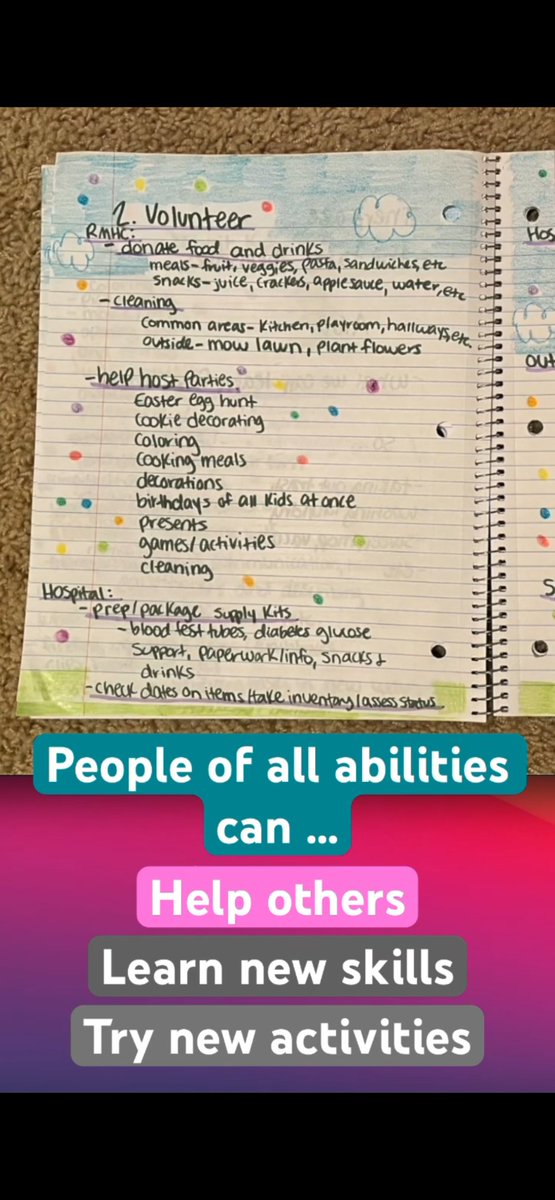 2. Volunteer
RMHC:
- donate food and drinks
meals - fruit, veggies, pasta, sandwiches, etc
snacks - juice, crackers, applesauce, water, etc
- cleaning
common areas - kitchen, playroom, hallways, etc.
outside - mow lawn, plant flowers
- help host parties
Easter egg hunt
cookie decorating
coloring
cooking meals
decorations
birthdays of all kids at once
presents
games/activities
cleaning
Hospital:
- prep/package supply kits
- blood test tubes, diabetes glucose
support, paperwork/info, snacks &
drinks
- check dates on items/take inventory/assess status
Hos
OUT
S
People of all abilities
can ...
Help others
Learn new skills
Try new activities